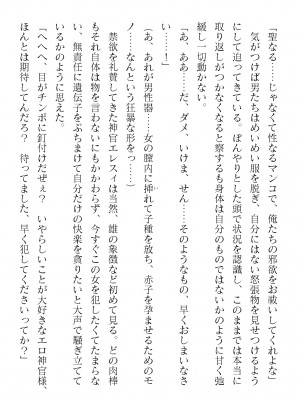 「聖なる……じゃなくて性なるマンコで、俺たちの邪欲をお祓いしてくれよォ」
気がつけば男たちはめいめい服を脱ぎ、自分にはない怒張物を見せつけるよう
にして迫ってきている。ぼんやりとした頭で状況を認識し、このままでは本当に
取り返しがつかなくなると察するも身体は自分のものではないかのように甘く弛
緩し一切動かない。
「あ、ああ……だ、ダメ、いけま、せん……そのような、早くおしまいなさ
い……！」
（あ、あれが男性器……女の膣内に挿れて子種を放ち、赤子を孕ませるためのモ
ノ……なんという狂暴な形をっ……）
禁欲を礼賛してきた神官エレスィは当然、雄の象徴など初めて見る。どの肉棒
もそれ自体は物を言わないにもかかわらず、今すぐこの女を犯したくてたまらな
い、無責任に遺伝子をぶちまけて自分だけの快楽を貪りたいと大声で騒ぎ立てて
いるかのように思えた。
「へへへ、目がチンポに釘付けだぜぇ？　いやらしいことが大好きなエロ神官様、
ほんとは期待してんだろ？　待ってました、早く犯してくださいってか？」